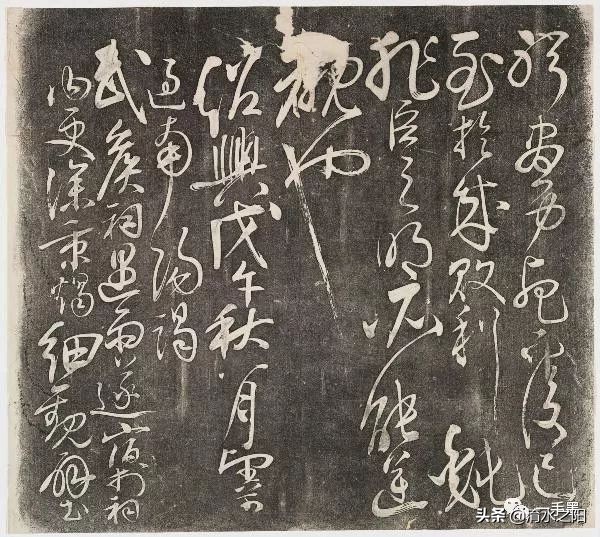 躬盡力死而後已
至於成敗利鈍
非臣之明所能逆
覩也
紹興戊午秋八月望前
過南陽謁
武侯祠遇雨遂宿於祠
內更深秉燭細觀壁
头条 @淯水之阳